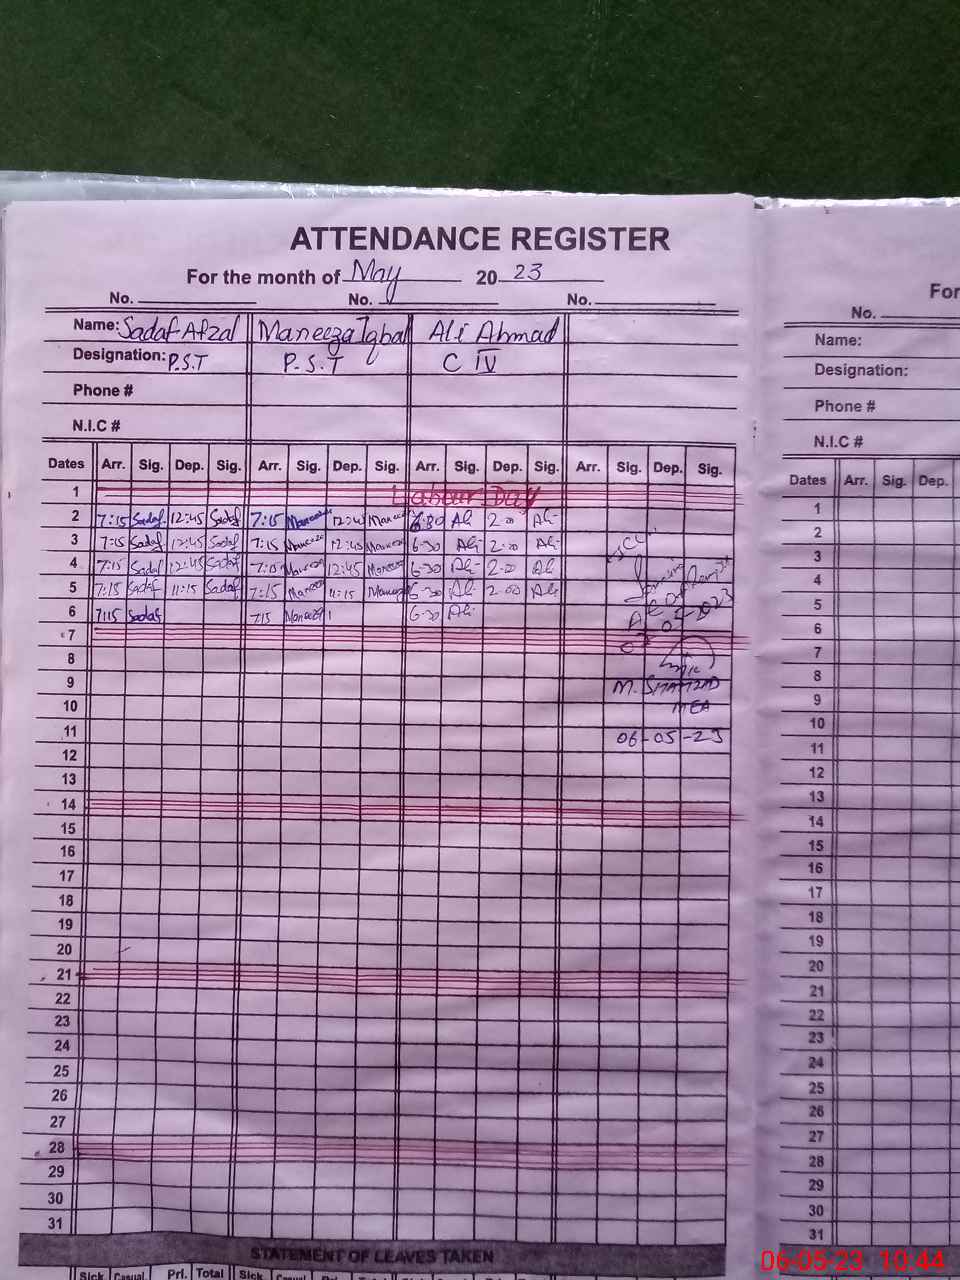 ATTENDANCE REGISTER
For the month of May 2023
No. No. No.
Name: Sadaf Afzal Maneeza Iqbal Ali Ahmad
Designation: P.S.T P.S.T C IV
Phone #
N.I.C #
Dates Arr. Sig. Dep. Sig. Arr. Sig. Dep. Sig. Arr. Sig. Dep. Sig. Arr. Sig. Dep. Sig.
1 Labour Day
2 7:15 Sadaf 12:45 Sadaf 7:15 Maneeza 12:4 Maneeza 6:30 Ali 2:00 Ali
3 7:15 Sadaf 12:45 Sadaf 7:15 Maneeza 12:45 Maneeza 6:30 Ali 2:00 Ali
4 7:15 Sadaf 12:45 Sadaf 7:15 Maneeza 12:45 Maneeza 6:30 Ali 2:00 Ali
5 7:15 Sadaf 11:15 Sadaf 7:15 Maneeza 11:15 Maneeza 6:30 Ali 2:00 Ali
6 7:15 Sadaf 7:15 Maneeza 6:30 Ali
7
8
9 M. SHAHZAD
10 MEA
11 06-05-23
12
13
14
15
16
17
18
19
20
21
22
23
24
25
26
27
28
29
30
31
STATEMENT OF LEAVES TAKEN
Sick Casual Pri. Total Sick Casual
For
No.
Name:
Designation:
Phone #
N.I.C #
Dates Arr. Sig. Dep.
1
2
3
4
5
6
7
8
9
10
11
12
13
14
15
16
17
18
19
20
21
22
23
24
25
26
27
28
29
30
31
06-05-23 10:44